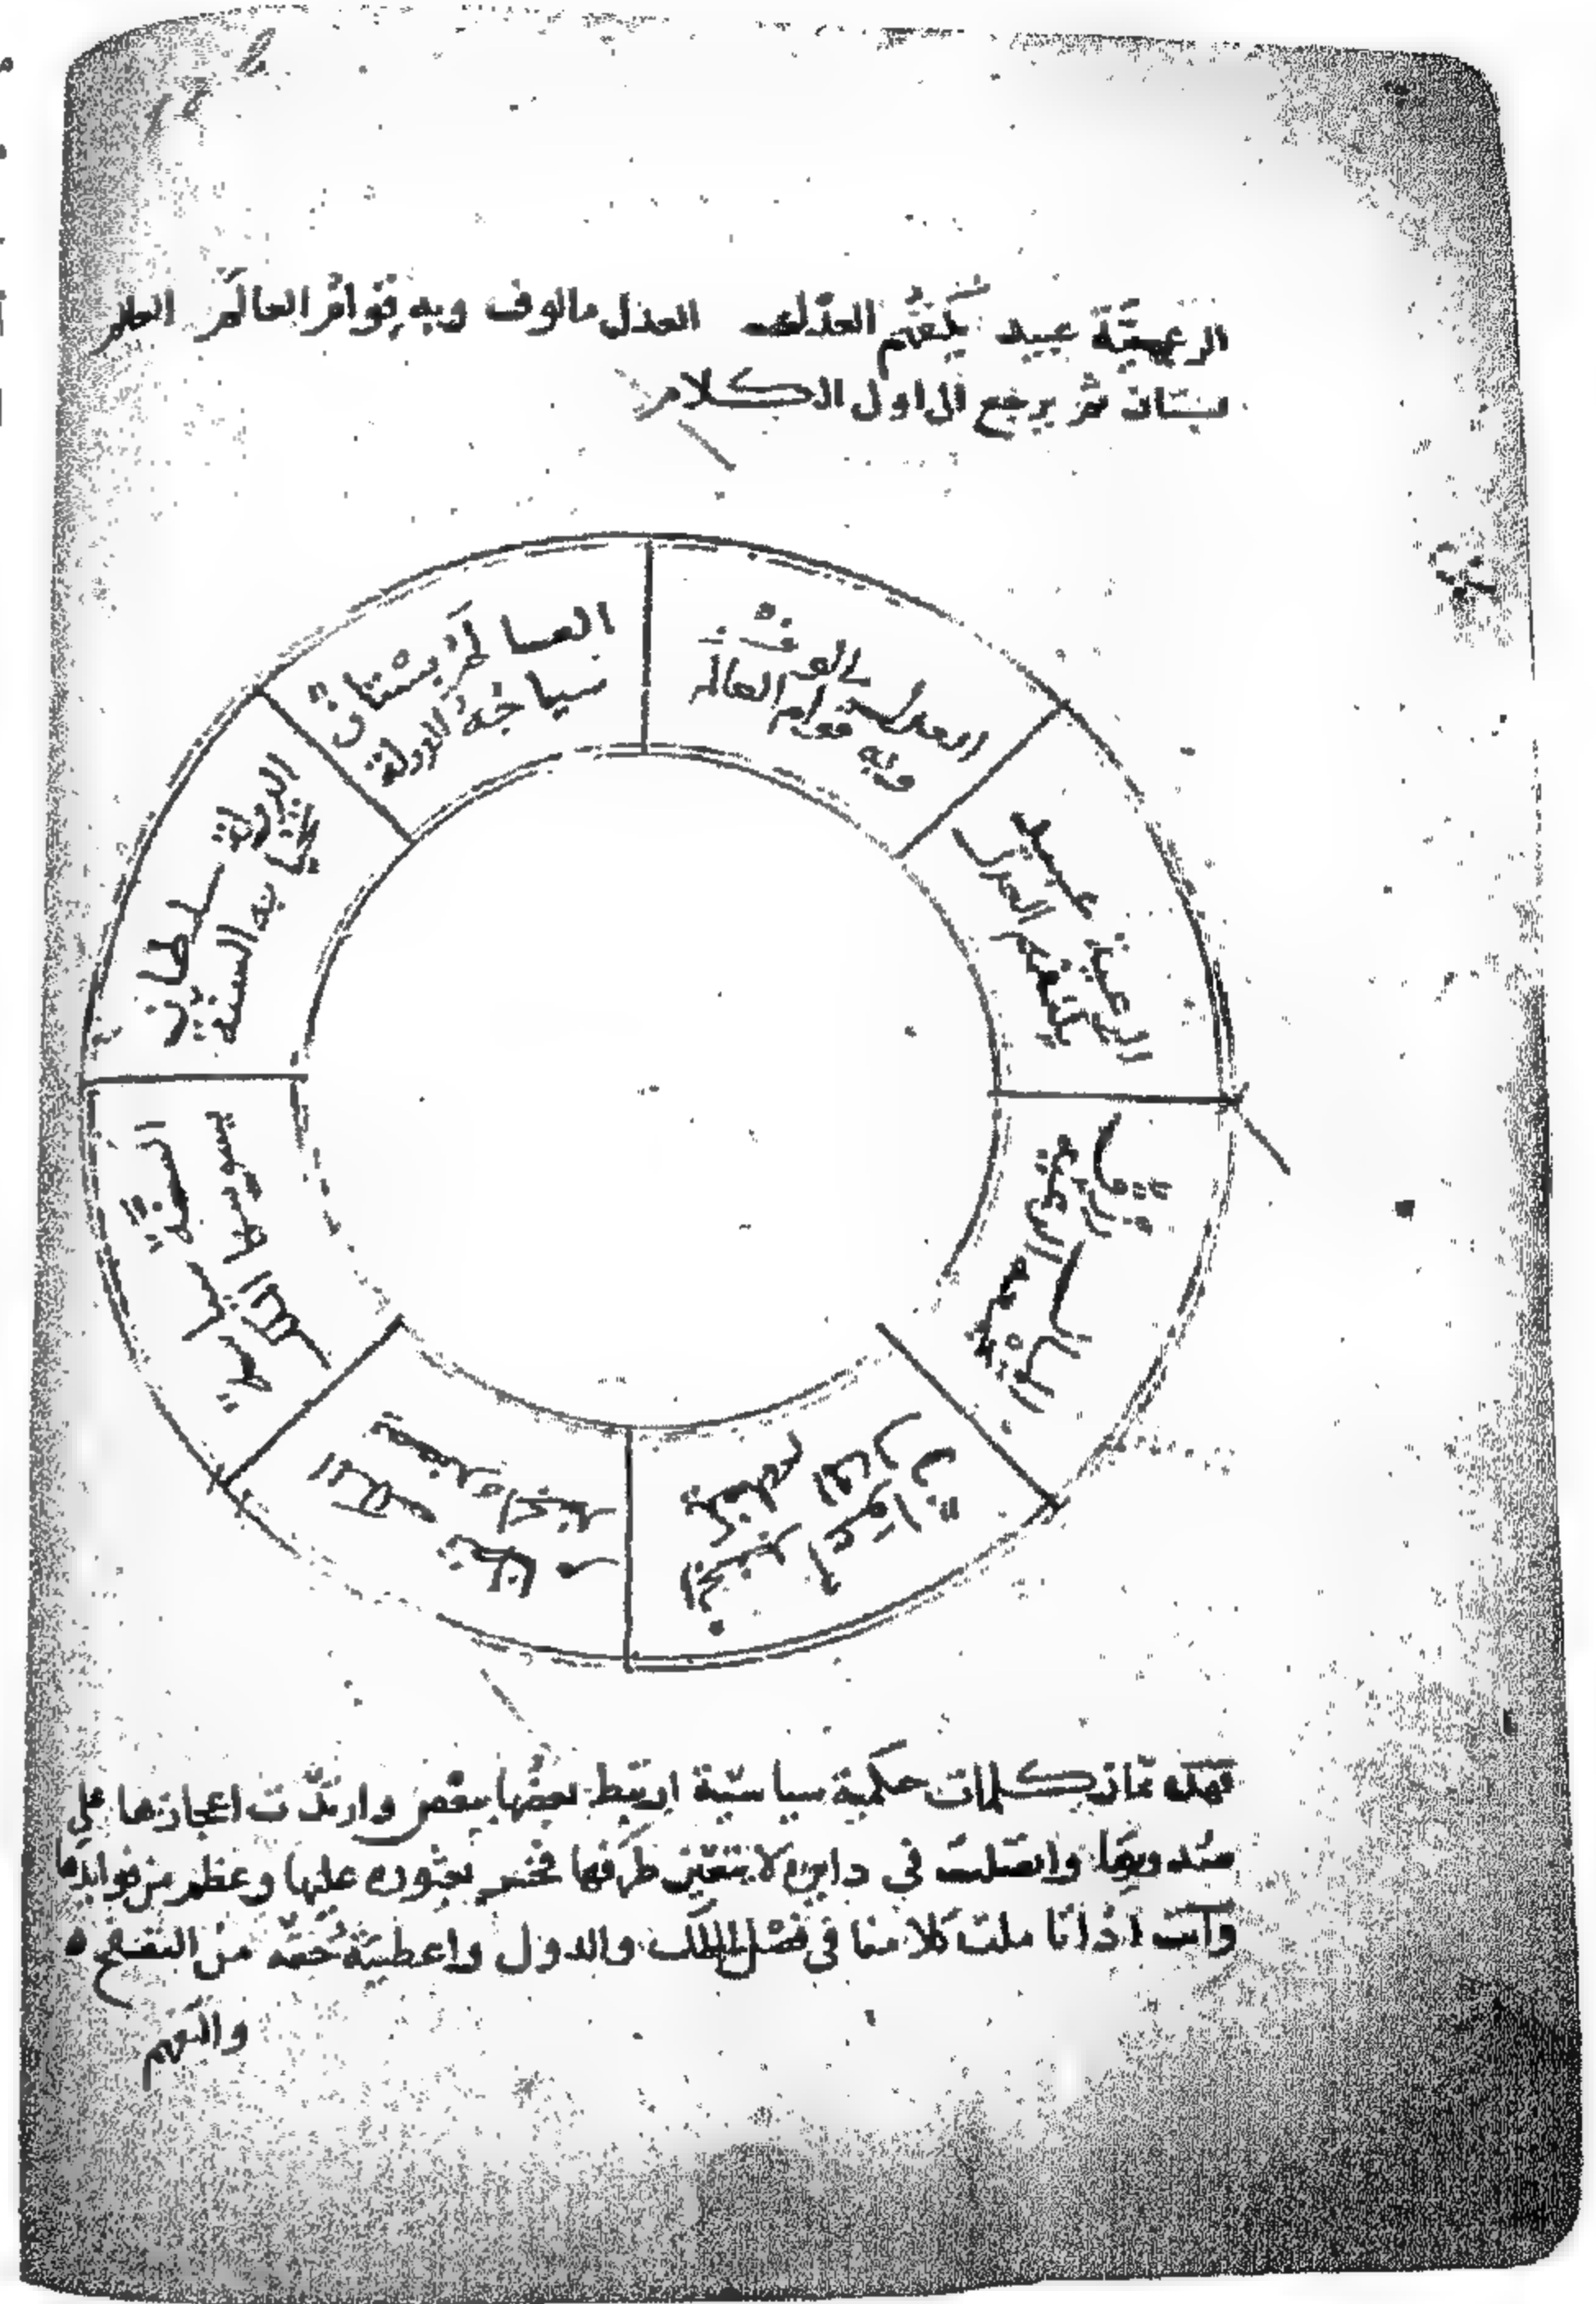 الرعيّة عبيد يكنفهم العدل العدل مالوف وبه قوام العالم العالم
بستان ثم يرجع الى اول الكلام
العالَم بستان
سياجه الدولة
الدولة سلطان
تحيا به السنة
السنة سياسة
يسوسها الملك
الملك نظام
يعضده الجند
الجند اعوان
يكفلهم المال
المال رزق
تجمعه الرعية
الرعية عبيد
يكنفهم العدل
العدل مالوف
وبه قوام العالم
فهذه ثمان كلمات حكمية سياسيّة ارتبط بعضها ببعض وارتدّت اعجازها على
صدورها واتصلت في دايرة لا يتعين طرفها فخر بعثوره عليها وعظم من فوايدها
وانت اذا تاملت كلامنا في فصل الملك والدول واعطيته حقه من التصفح
والتفهم